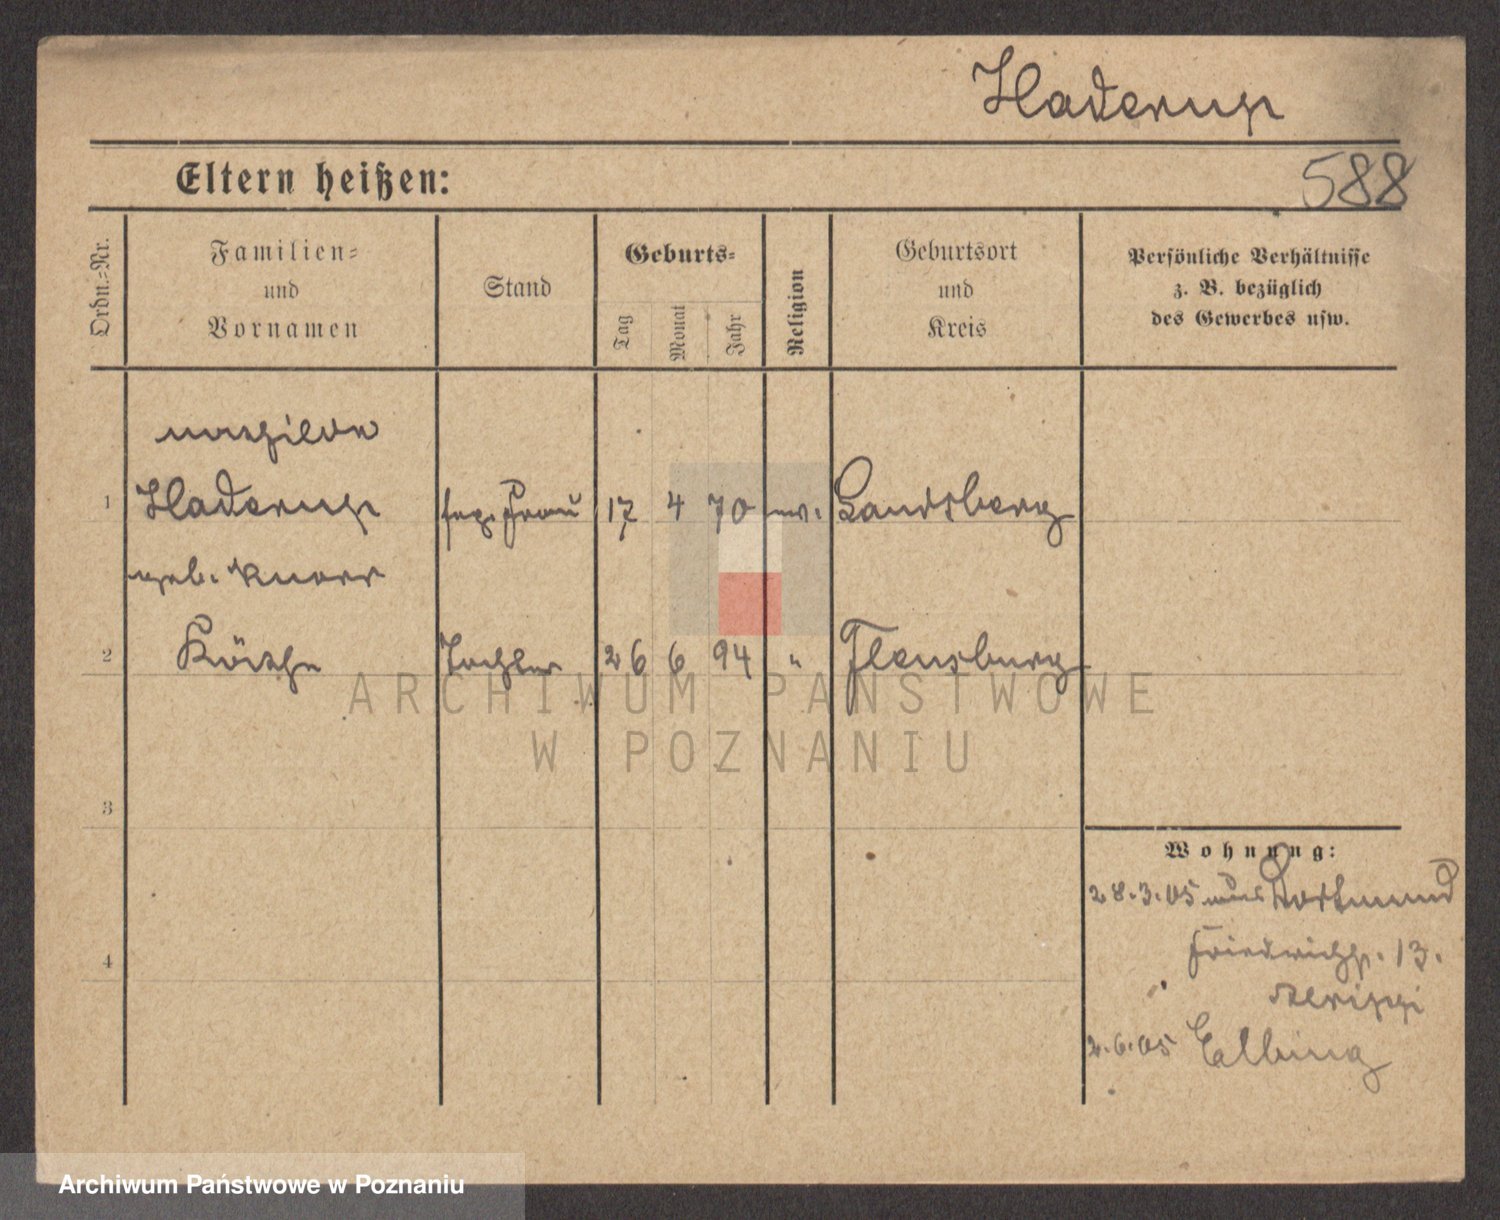 Haderup
Eltern heißen:
588
Ordn.=Nr.
Familien=
und
Vornamen
Stand
Geburts=
Tag
Monat
Jahr
Religion
Geburtsort
und
Kreis
Persönliche Verhältnisse
z. B. bezüglich
des Gewerbes usw.
Mathilde
1 Haderup Frau 17 4 70 ev. Landsberg
geb. Knorr
2 Käthe Tochter 26 6 94 " Flensburg
3
4
Wohnung:
28.3.05 aus Dortmund
Friedrichstr. 13.
2.6.05 Elbing
ARCHIWUM PAŃSTWOWE
W POZNANIU
Archiwum Państwowe w Poznaniu